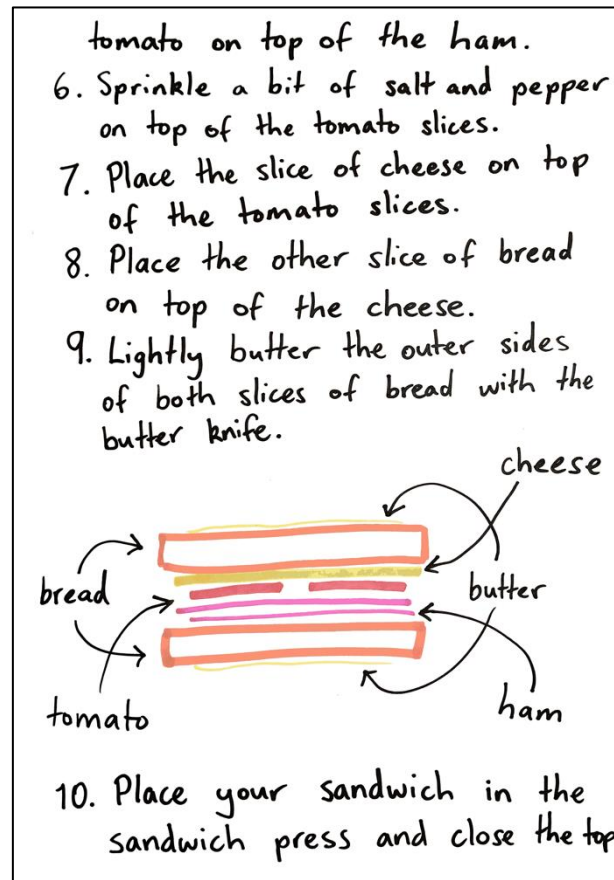 tomato on top of the ham.
6. Sprinkle a bit of salt and pepper
on top of the tomato slices.
7. Place the slice of cheese on top
of the tomato slices.
8. Place the other slice of bread
on top of the cheese.
9. Lightly butter the outer sides
of both slices of bread with the
butter knife.
cheese
bread
butter
tomato
ham
10. Place your sandwich in the
sandwich press and close the top